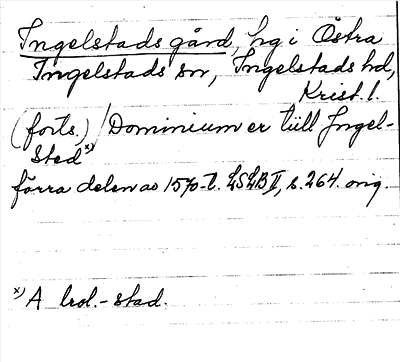 Ingelstads gård, hg i Östra
Ingelstads sn, Ingelstads hd,
Krist. l.
(forts.) / Dominium er tüll Jngel-
sted x)
förra delen av 1570-t. LSLB II, s. 264. orig.
x) A -stad.